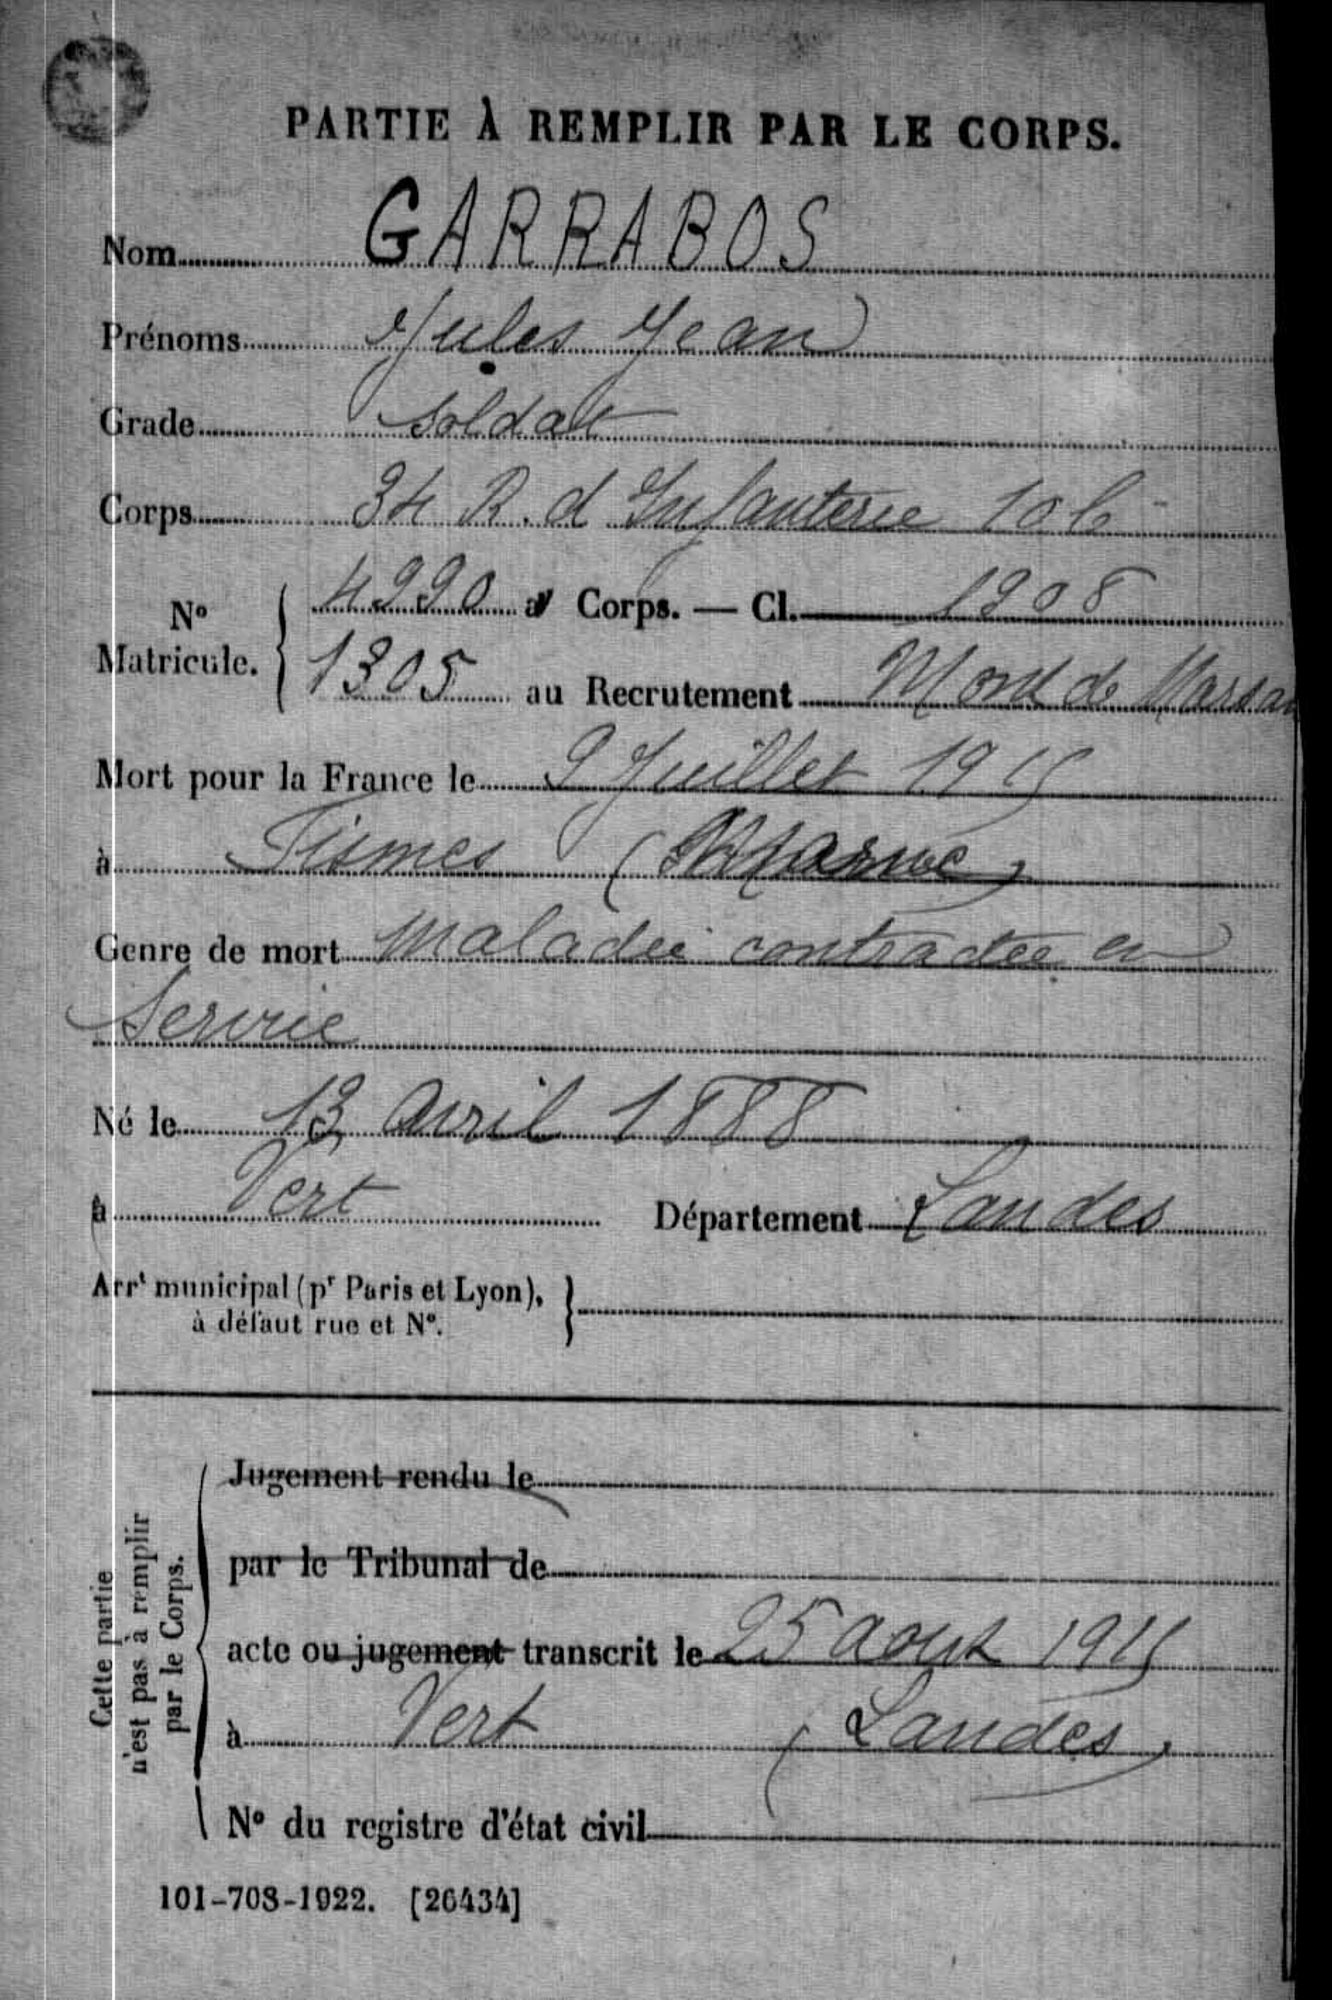 PARTIE À REMPLIR PAR LE CORPS.
Nom GARRABOS
Prénoms Jules Jean
Grade Soldat
Corps 34 R. d'Infanterie 10 C
N° Matricule. { 4990 au Corps. — Cl. 1908
1305 au Recrutement Mont de Marsan
Mort pour la France le 9 Juillet 1915
à Fismes (Marne)
Genre de mort maladie contractée en
Service
Né le 13 avril 1888
à Vert Département Landes
Arrt municipal (pr Paris et Lyon),
à défaut rue et N°.
Cette partie
n'est pas à remplir
par le Corps.
Jugement rendu le
par le Tribunal de
acte ou jugement transcrit le 25 aout 1915
à Vert (Landes)
N° du registre d'état civil
101-708-1922. [26434]